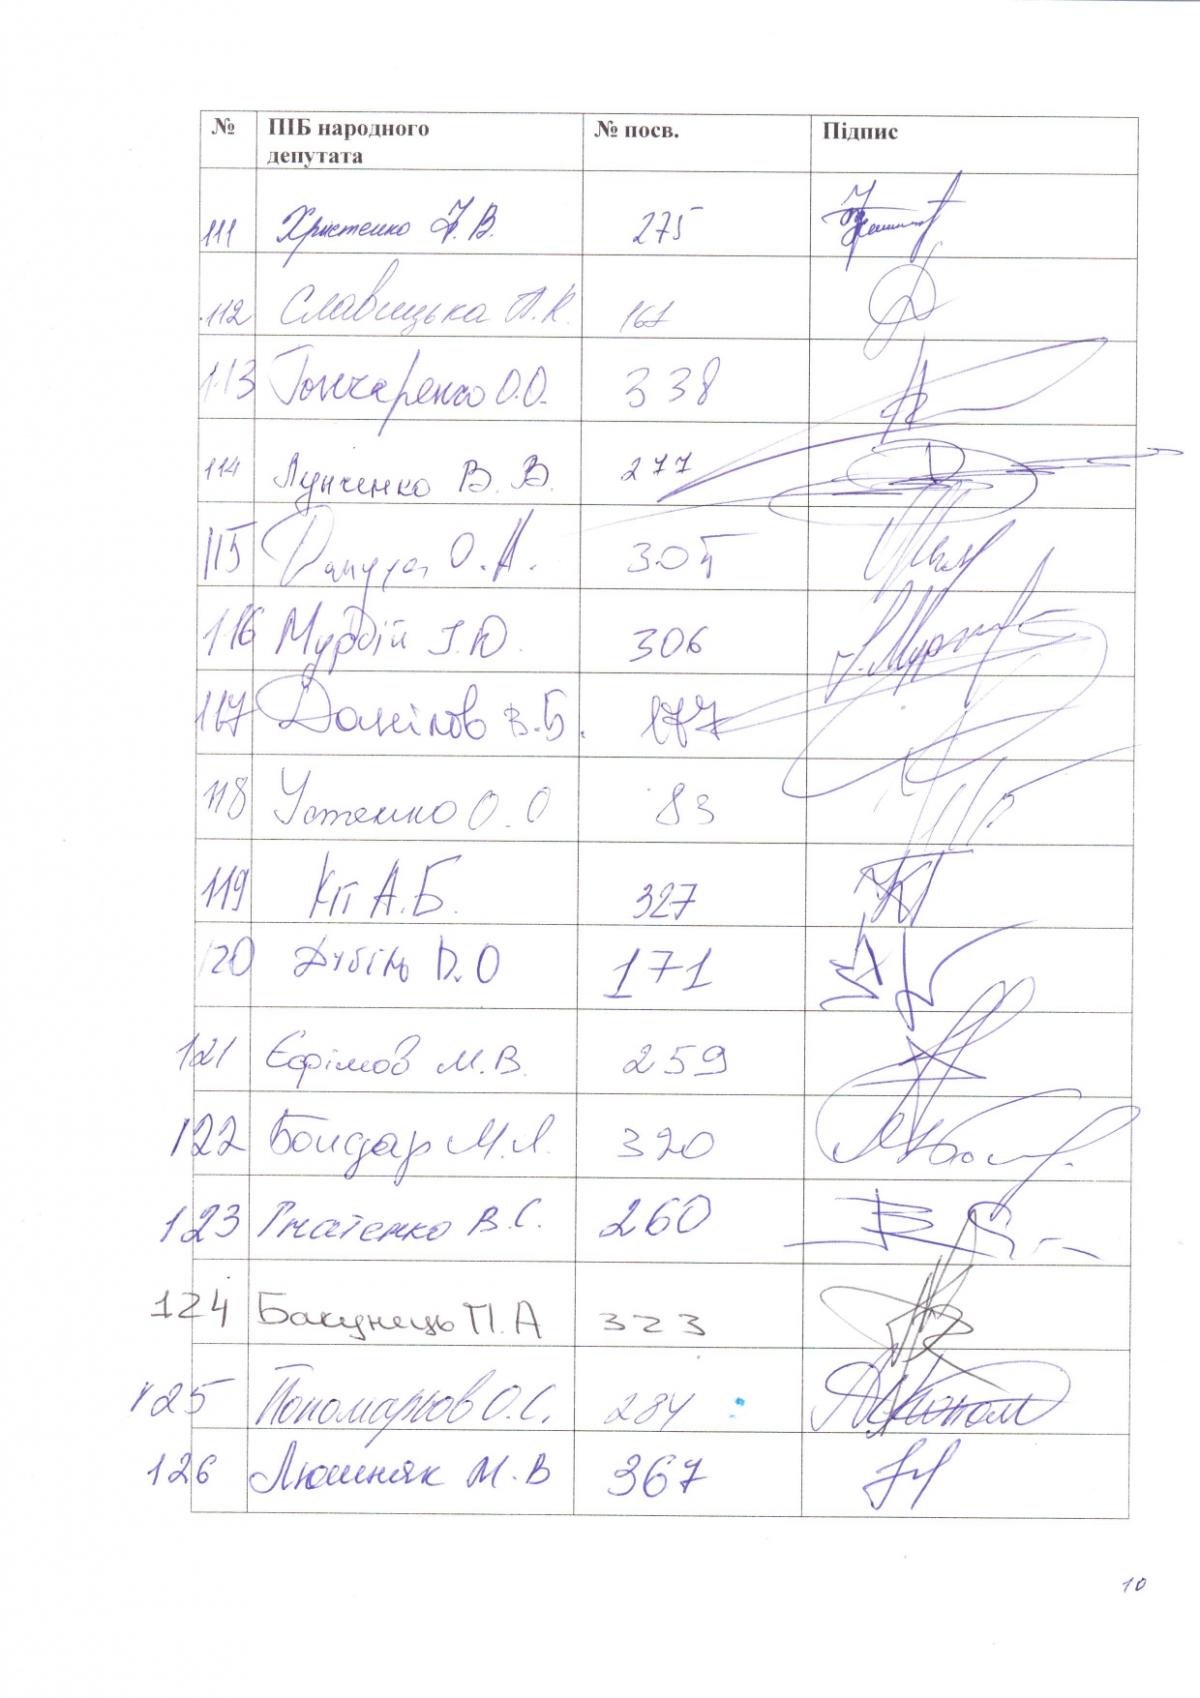 № ПІБ народного депутата № посв. Підпис
111 Христенко Ф.В. 275
112 Славицька А.К. 167
113 Гончаренко О.О. 338
114 Лунченко В.В. 277
115 О.А. 305
116 І.Ю. 306
117 Данілов В.Б. 177
118 Устенко О.О 83
119 Кіт А.Б. 327
120 Дубінь О 171
121 Єфімов М.В. 259
122 Бондар М.Л. 320
123 Гнатенко В.С. 260
124 Бакунець П.А 323
125 Пономарьов О.С. 284
126 Люшняк М.В 367
10